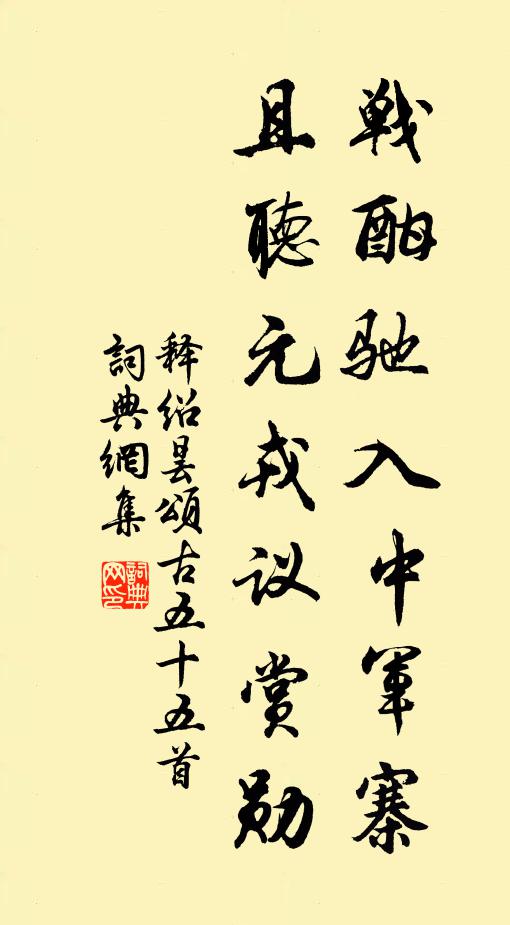 戦酣驰入中軍寨
且聴元戎议赏勋
释绍昙頌古五十五首
詞典網集
詞典网印